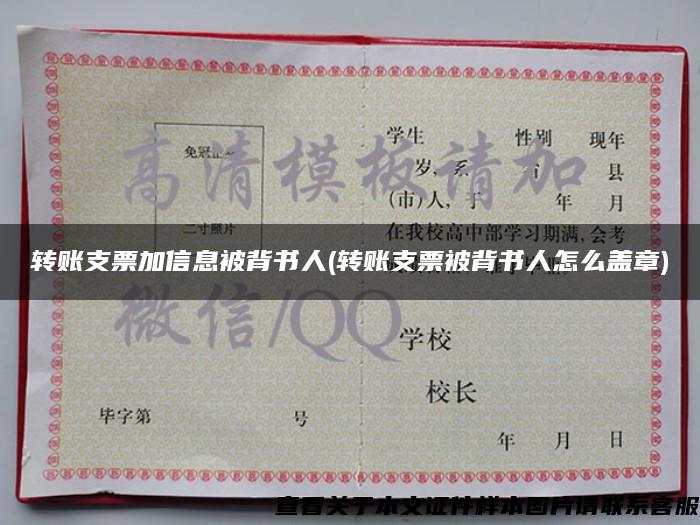 学生 性别 现年
岁, 系 省 县
(市)人, 于 年 月
在我校高中部学习期满, 会考
免冠正
二寸照片
高清模板请加
转账支票加信息被背书人(转账支票被背书人怎么盖章)
微信/QQ
学校
校长
毕字第 号
年 月 日
查看关于本文证件样本图片请联系客服